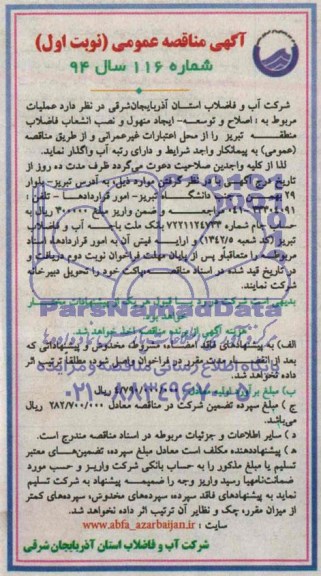 آگهی مناقصه عمومی (نوبت اول)
شماره ۱۱۶ سال ۹۴
شرکت آب و فاضلاب استان آذربایجان‌شرقی در نظر دارد عملیات
مربوط به : اصلاح و توسعه- ایجاد منهول و نصب انشعاب فاضلاب
منطقه تبریز را از محل اعتبارات غیرعمرانی و از طریق مناقصه
(عمومی) به پیمانکار واجد شرایط و دارای رتبه آب واگذار نماید.
لذا از کلیه واجدین صلاحیت دعوت می‌گردد ظرف مدت ده روز از
تاریخ درج آگهی با در نظر گرفتن موارد ذیل، به آدرس تبریز- بلوار
۲۹ بهمن دانشگاه تبریز- امور قراردادها - تلفن :
مراجعه و ضمن واریز مبلغ ۳۰۰/۰۰۰ ریال به
حساب جام شماره ۷۲۲۱۱۲۴۷۳۳ بانک ملت باجه آب و فاضلاب
تبریز (کد شعبه ۱۳۴۲/۵) و ارایه فیش آن به امور قراردادها، اسناد
مربوطه را متعاقباً و پس از پایان مهلت فراخوان نوبت دوم دریافت و
در تاریخ قید شده در اسناد مناقصه پاکت خود را تحویل دبیرخانه
شرکت نمایند.
بدیهی است شرکت در رد یا قبول هر یک از پیشنهادات مختار
خواهد بود.
هزینه آگهی از برنده مناقصه اخذ خواهد شد.
الف) به پیشنهادهای فاقد امضاء، مشروط، مخدوش و پیشنهاداتی که
بعد از انقضاء مدت مقرر در فراخوان واصل شود مطلقاً ترتیب اثر
داده نخواهد شد.
ب) مبلغ برآورد اولیه معادل ریال
ج) مبلغ سپرده تضمین شرکت در مناقصه معادل ۲۸۲/۷۰۰/۰۰۰ ریال
می‌باشد.
د) سایر اطلاعات و جزئیات مربوطه در اسناد مناقصه مندرج است.
ه) پیشنهاددهنده مکلف است معادل مبلغ سپرده، تضمین‌های معتبر
تسلیم یا مبلغ مذکور را به حساب بانکی شرکت واریز و حسب مورد
ضمانت‌نامه‌یا رسید واریز وجه را ضمیمه پیشنهاد به شرکت تسلیم
نماید به پیشنهادهای فاقد سپرده، سپرده‌های مخدوش، سپرده‌های کمتر
از میزان مقرر، چک و نظایر آن ترتیب اثر داده نخواهد شد.
سایت : www.abfa_azarbaijan.ir
شرکت آب و فاضلاب استان آذربایجان شرقی
ParsNamadData
پایگاه اطلاع رسانی مناقصه و مزایده
۰۲۱-۸۸۳۴۹۶۷۰-۵